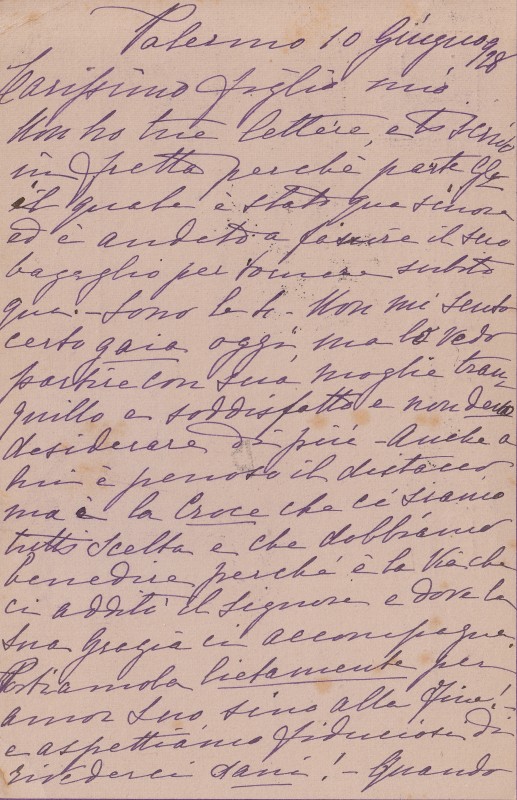 Palermo 10 Giugno 98
Carissimo figlio mio
Non ho tue lettere, e ti scrivo
in fretta perchè parte
il quale è stato qua sinora
ed è andato a finire il suo
bagaglio per tornare subito
qui. – Sono le 4. – Non mi sento
certo gaia oggi ma lo vedo
partire con sua moglie tran-
quillo e soddisfatto e non devo
desiderare di più – Anche a
lui è penoso il distacco
ma è la Croce che ci siamo
tutti scelta e che dobbiamo
benedire perchè è la Via che
ci additi il Signore e dove la
sua Grazia ci accompagna.
Portiamola lietamente per
amor Suo sino alla fine! –
e aspettiamo fiduciosi di
rivederci sani! – Quando